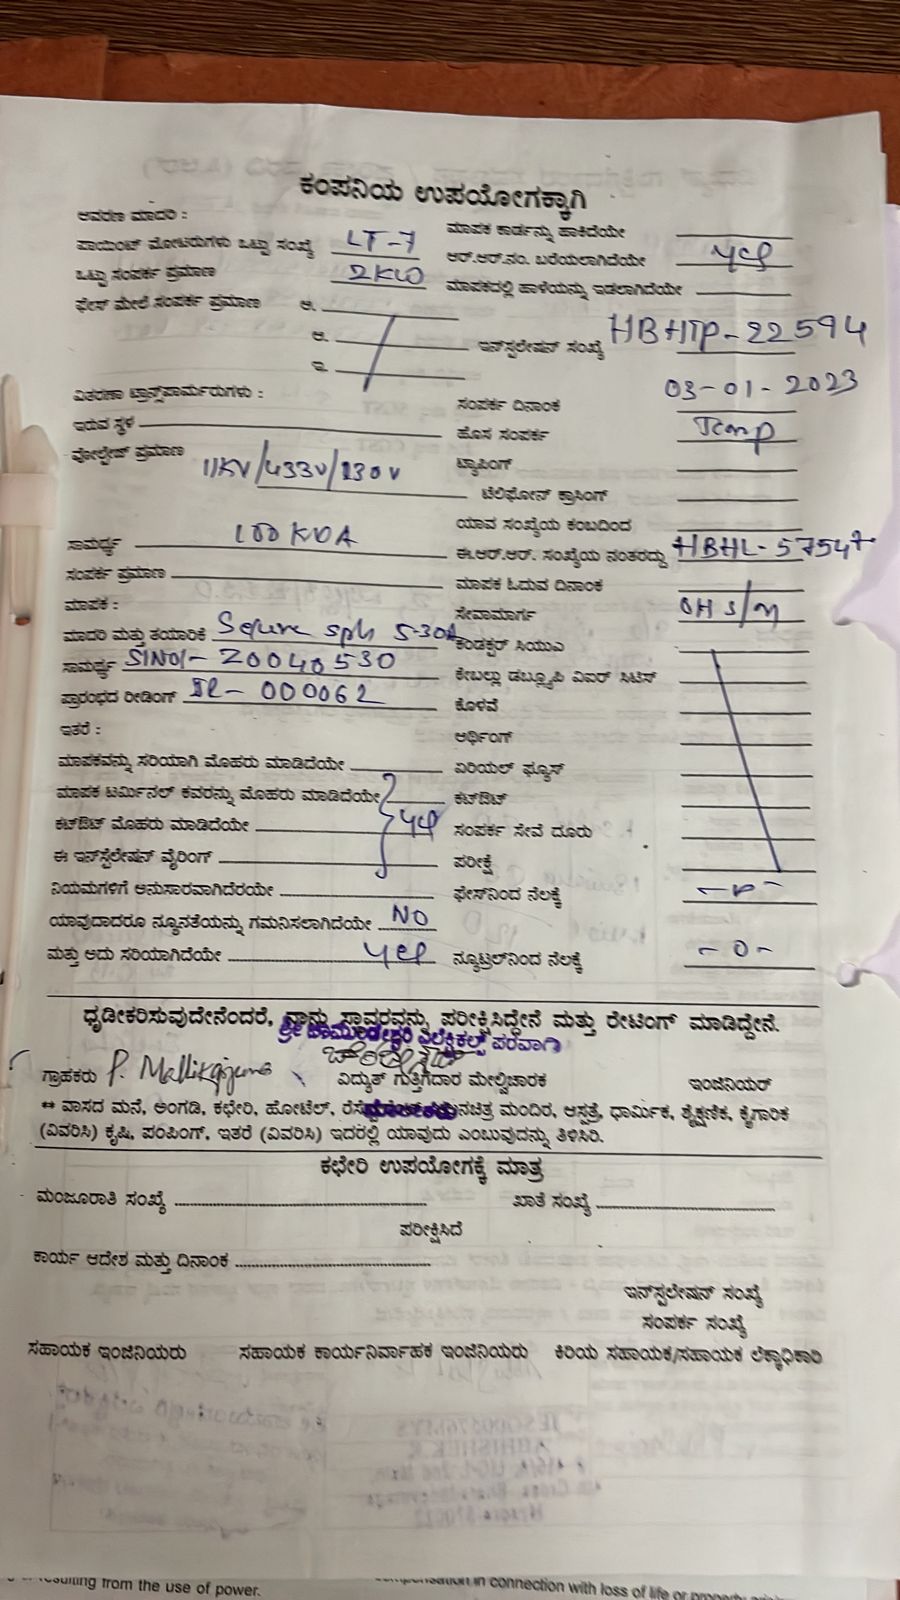 ಕಂಪನಿಯ ಉಪಯೋಗಕ್ಕಾಗಿ
ಆವರಣ ಮಾದರಿ :
ಮಾಪಕ ಕಾರ್ಡನ್ನು ಹಾಕಿದೆಯೇ
ಪಾಯಿಂಟ್ ಮೋಟರುಗಳು ಒಟ್ಟು ಸಂಖ್ಯೆ LT-7
ಆರ್.ಆರ್.ನಂ. ಬರೆಯಲಾಗಿದೆಯೇ yes
ಒಟ್ಟು ಸಂಪರ್ಕ ಪ್ರಮಾಣ 2KW
ಮಾಪಕದಲ್ಲಿ ಹಾಳೆಯನ್ನು ಇಡಲಾಗಿದೆಯೇ
ಫೇಸ್ ಮೇಲೆ ಸಂಪರ್ಕ ಪ್ರಮಾಣ ಅ.
ಆ.
ಇನ್‌ಸ್ಟಲೇಷನ್ ಸಂಖ್ಯೆ HBHTP-22594
ಇ.
ವಿತರಣಾ ಟ್ರಾನ್ಸ್‌ಫಾರ್ಮರುಗಳು :
ಸಂಪರ್ಕ ದಿನಾಂಕ 03-01-2023
ಇರುವ ಸ್ಥಳ
ಹೊಸ ಸಂಪರ್ಕ Temp
ವೋಲ್ಟೇಜ್ ಪ್ರಮಾಣ 11KV/433V/230V
ಟ್ಯಾಪಿಂಗ್
ಟೆಲಿಫೋನ್ ಕ್ರಾಸಿಂಗ್
ಯಾವ ಸಂಖ್ಯೆಯ ಕಂಬದಿಂದ
ಸಾಮರ್ಥ್ಯ 100 KVA
ಈ.ಆರ್.ಆರ್. ಸಂಖ್ಯೆಯ ನಂತರದ್ದು HBHL-57547
ಸಂಪರ್ಕ ಪ್ರಮಾಣ
ಮಾಪಕ ಓದುವ ದಿನಾಂಕ
ಮಾಪಕ :
ಸೇವಾಮಾರ್ಗ OH S/M
ಮಾದರಿ ಮತ್ತು ತಯಾರಿಕೆ Secure sph 5-30A
ಕಂಡಕ್ಟರ್ ಸಿಯುಎ
ಸಾಮರ್ಥ್ಯ SlNo- 20040530
ಕೇಬಲ್ಲು ಡಬ್ಲ್ಯೂಪಿ ಎವರ್ ಸಿಟಿಸ್
ಪ್ರಾರಂಭದ ರೀಡಿಂಗ್ IR- 000062
ಕೊಳವೆ
ಇತರೆ :
ಅರ್ಥಿಂಗ್
ಮಾಪಕವನ್ನು ಸರಿಯಾಗಿ ಮೊಹರು ಮಾಡಿದೆಯೇ
ಏರಿಯಲ್ ಫ್ಯೂಸ್
ಮಾಪಕ ಟರ್ಮಿನಲ್ ಕವರನ್ನು ಮೊಹರು ಮಾಡಿದೆಯೇ
ಕಟ್‌ಔಟ್
ಕಟ್‌ಔಟ್ ಮೊಹರು ಮಾಡಿದೆಯೇ yes
ಸಂಪರ್ಕ ಸೇವೆ ದೂರು
ಈ ಇನ್‌ಸ್ಟೆಲೇಷನ್ ವೈರಿಂಗ್
ಪರೀಕ್ಷೆ
ನಿಯಮಗಳಿಗೆ ಅನುಸಾರವಾಗಿದೆರಯೇ
ಫೇಸ್‌ನಿಂದ ನೆಲಕ್ಕೆ
ಯಾವುದಾದರೂ ನ್ಯೂನತೆಯನ್ನು ಗಮನಿಸಲಾಗಿದೆಯೇ NO
ಮತ್ತು ಅದು ಸರಿಯಾಗಿದೆಯೇ yes
ನ್ಯೂಟ್ರಲ್‌ನಿಂದ ನೆಲಕ್ಕೆ -0-
ಧೃಡೀಕರಿಸುವುದೇನೆಂದರೆ, ನಾನು ಸ್ಥಾವರವನ್ನು ಪರೀಕ್ಷಿಸಿದ್ದೇನೆ ಮತ್ತು ರೇಟಿಂಗ್ ಮಾಡಿದ್ದೇನೆ.
ಶ್ರೀ ಚಾಮುಂಡೇಶ್ವರಿ ಎಲೆಕ್ಟ್ರಿಕಲ್ಸ್ ಪರವಾಗಿ
ಗ್ರಾಹಕರು P. Mallikarjuna ವಿದ್ಯುತ್ ಗುತ್ತಿಗೆದಾರ ಮೇಲ್ವಿಚಾರಕ ಇಂಜಿನಿಯರ್
** ವಾಸದ ಮನೆ, ಅಂಗಡಿ, ಕಛೇರಿ, ಹೋಟೆಲ್, ಮಂದಿರ, ಆಸ್ಪತ್ರೆ, ಧಾರ್ಮಿಕ, ಶೈಕ್ಷಣಿಕ, ಕೈಗಾರಿಕ
(ವಿವರಿಸಿ) ಕೃಷಿ, ಪಂಪಿಂಗ್, ಇತರೆ (ವಿವರಿಸಿ) ಇದರಲ್ಲಿ ಯಾವುದು ಎಂಬುವುದನ್ನು ತಿಳಿಸಿರಿ.
ಕಛೇರಿ ಉಪಯೋಗಕ್ಕೆ ಮಾತ್ರ
ಮಂಜೂರಾತಿ ಸಂಖ್ಯೆ ಖಾತೆ ಸಂಖ್ಯೆ
ಪರೀಕ್ಷಿಸಿದೆ
ಕಾರ್ಯ ಆದೇಶ ಮತ್ತು ದಿನಾಂಕ
ಇನ್‌ಸ್ಟಲೇಷನ್ ಸಂಖ್ಯೆ
ಸಂಪರ್ಕ ಸಂಖ್ಯೆ
ಸಹಾಯಕ ಇಂಜಿನಿಯರು ಸಹಾಯಕ ಕಾರ್ಯನಿರ್ವಾಹಕ ಇಂಜಿನಿಯರು ಕಿರಿಯ ಸಹಾಯಕ/ಸಹಾಯಕ ಲೆಕ್ಕಾಧಿಕಾರಿ
resulting from the use of power.
compensation in connection with loss of life or property